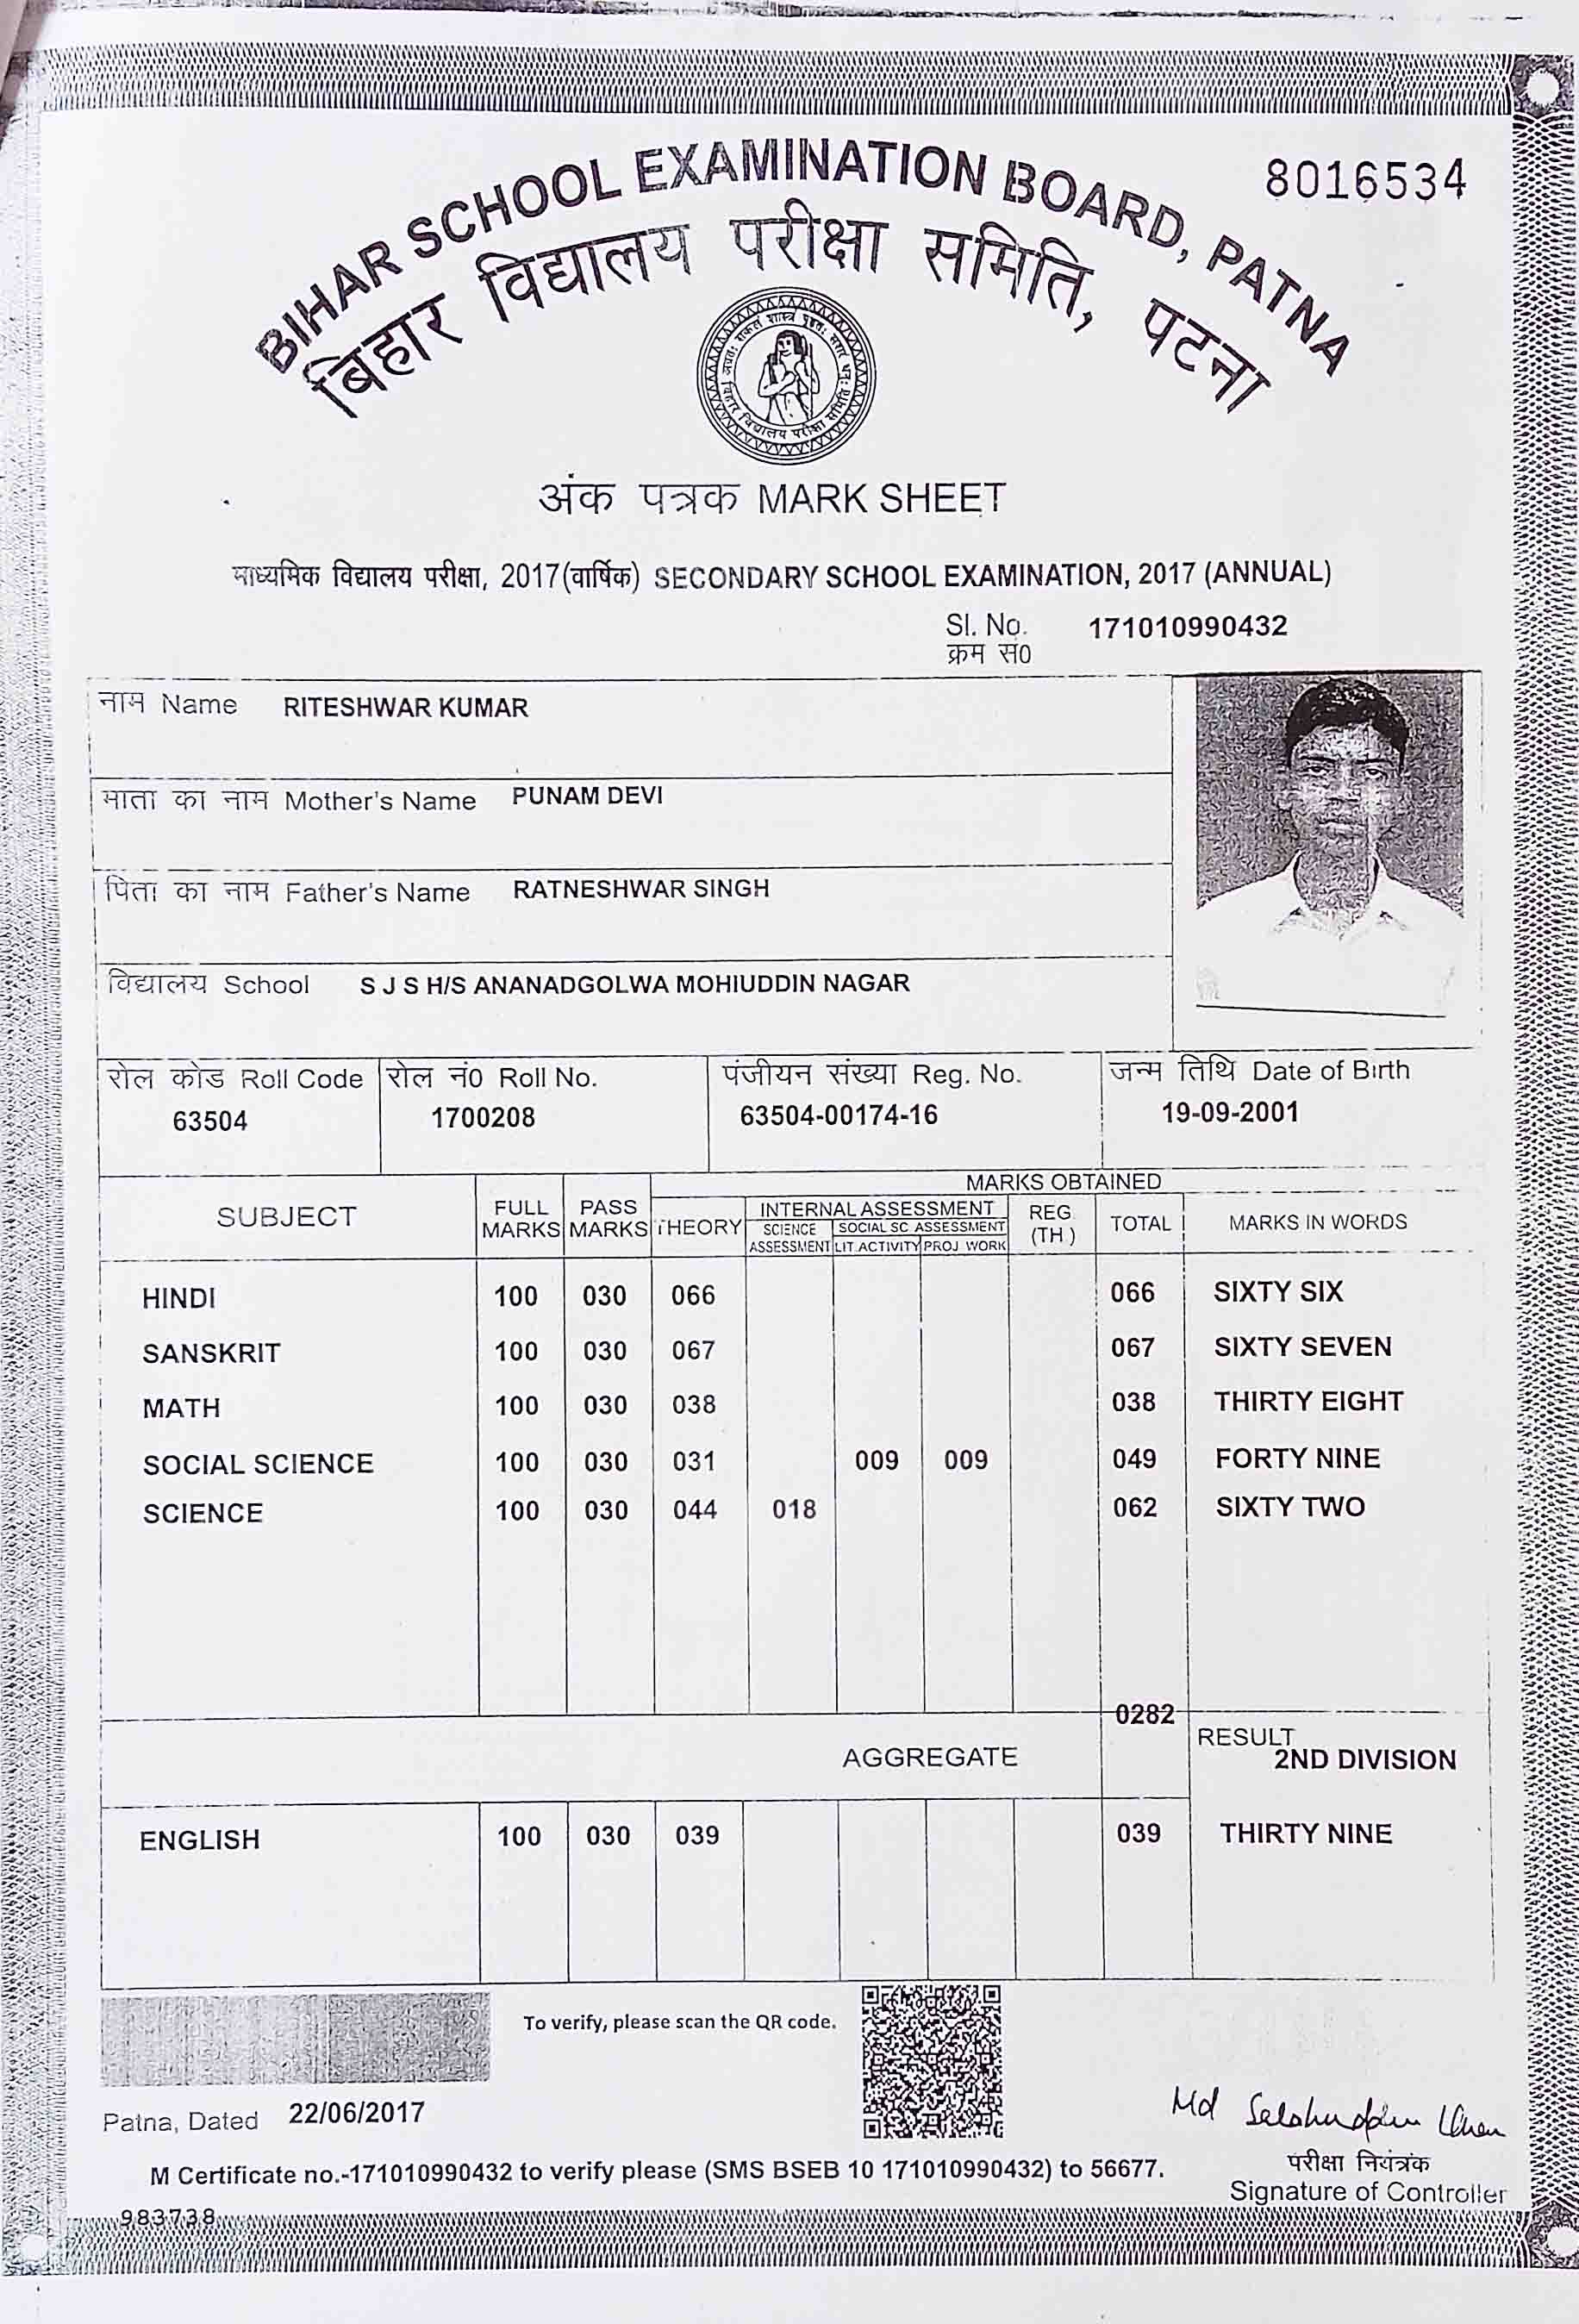 8016534
BIHAR SCHOOL EXAMINATION BOARD, PATNA
बिहार विद्यालय परीक्षा समिति, पटना
बिहार विद्यालय परीक्षा समिति
अंक पत्रक MARK SHEET
माध्यमिक विद्यालय परीक्षा, 2017(वार्षिक) SECONDARY SCHOOL EXAMINATION, 2017 (ANNUAL)
Sl. No. 171010990432
क्रम सं0
नाम Name RITESHWAR KUMAR
माता का नाम Mother's Name PUNAM DEVI
पिता का नाम Father's Name RATNESHWAR SINGH
विद्यालय School S J S H/S ANANADGOLWA MOHIUDDIN NAGAR
रोल कोड Roll Code रोल नं0 Roll No. पंजीयन संख्या Reg. No. जन्म तिथि Date of Birth
63504 1700208 63504-00174-16 19-09-2001
MARKS OBTAINED
SUBJECT FULL MARKS PASS MARKS THEORY INTERNAL ASSESSMENT REG. (TH) TOTAL MARKS IN WORDS
SCIENCE ASSESSMENT SOCIAL SC ASSESSMENT
LIT.ACTIVITY PROJ. WORK
HINDI 100 030 066 066 SIXTY SIX
SANSKRIT 100 030 067 067 SIXTY SEVEN
MATH 100 030 038 038 THIRTY EIGHT
SOCIAL SCIENCE 100 030 031 009 009 049 FORTY NINE
SCIENCE 100 030 044 018 062 SIXTY TWO
0282
AGGREGATE RESULT 2ND DIVISION
ENGLISH 100 030 039 039 THIRTY NINE
To verify, please scan the QR code.
Patna, Dated 22/06/2017
Md Salahuddin Khan
M Certificate no.-171010990432 to verify please (SMS BSEB 10 171010990432) to 56677.
परीक्षा नियंत्रक
Signature of Controller
983738